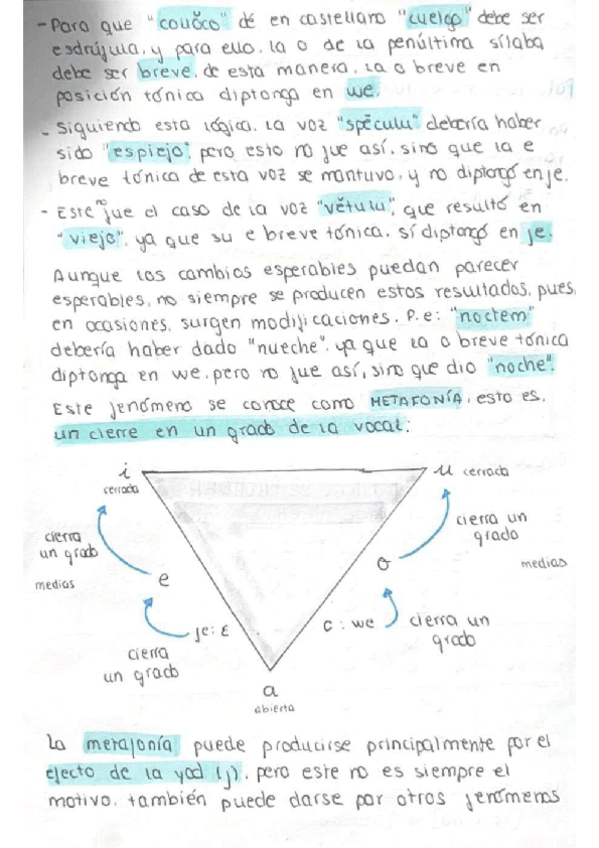 - Para que "collŏco" dé en castellano "cuelgo" debe ser
esdrújula, y para ello, la o de la penúltima sílaba
debe ser breve, de esta manera, la o breve en
posición tónica diptonga en we.
- Siguiendo esta lógica, la voz "spĕculu" debería haber
sido "espiejo", pero esto no fue así, sino que la e
breve tónica de esta voz se mantuvo, y no diptongó en je.
- Este fue el caso de la voz "vĕtulu", que resultó en
"viejo", ya que su e breve tónica, sí diptongó en je.
Aunque los cambios esperables puedan parecer
esperables, no siempre se producen estos resultados, pues,
en ocasiones, surgen modificaciones. P.e: "noctem"
debería haber dado "nueche", ya que la o breve tónica
diptonga en we, pero no fue así, sino que dio "noche".
Este fenómeno se conoce como METAFONÍA, esto es,
un cierre en un grado de la vocal:
i
cerrada
u cerrada
cierra
un grado
cierra un
grado
medias
e
o
medias
je: ɛ
ɔ: we
cierra un
grado
cierra
un grado
a
abierta
La metafonía puede producirse principalmente por el
efecto de la yod (j), pero este no es siempre el
motivo, también puede darse por otros fenómenos